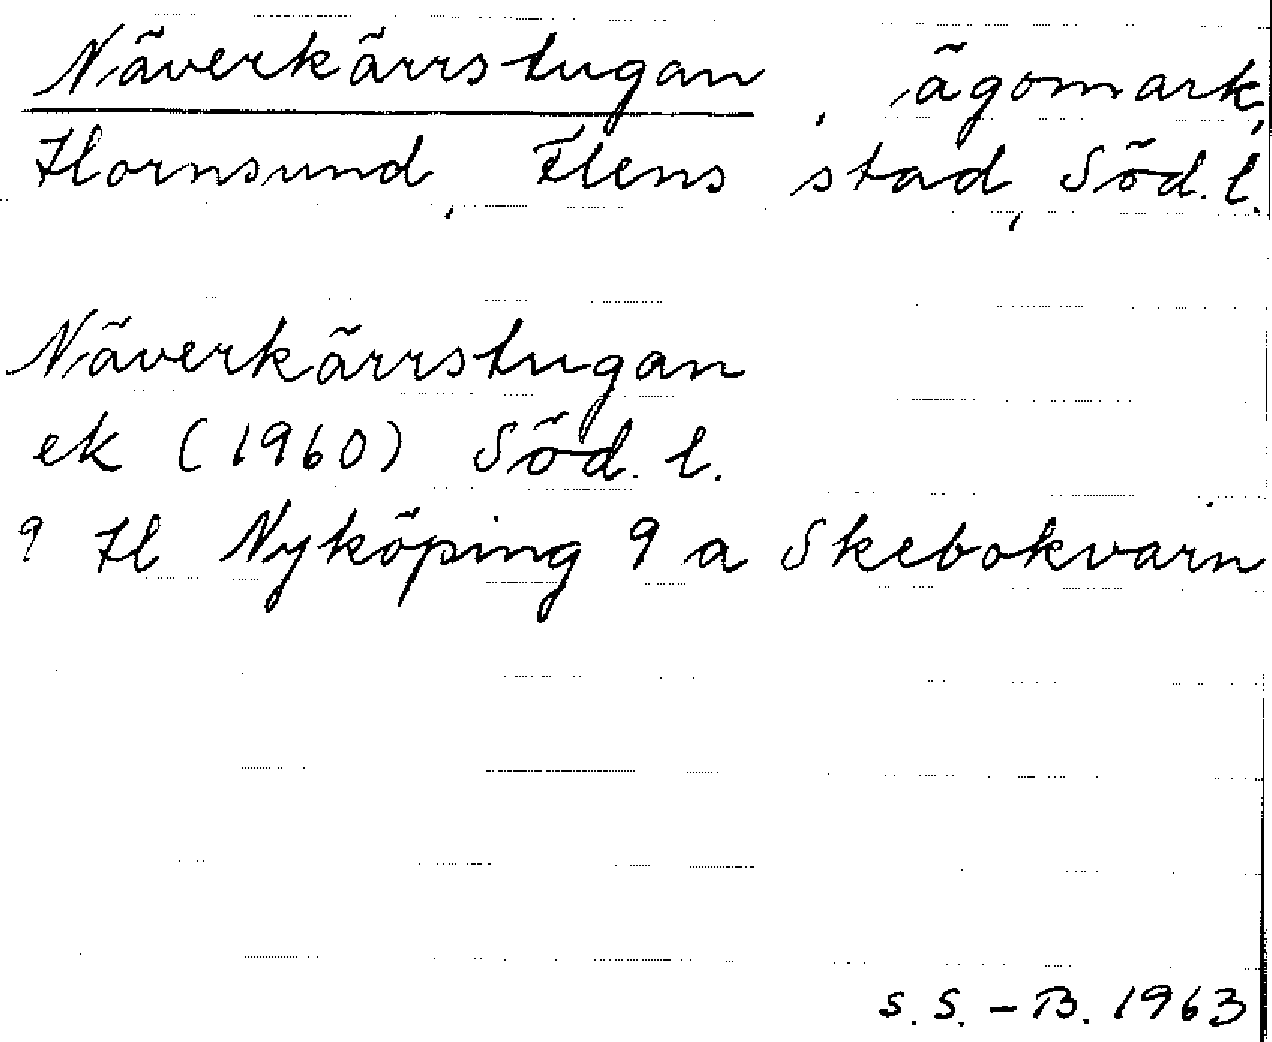 Näverkärrstugan, ägomark,
Hornsund, Flens stad, Söd. l.
Näverkärrstugan
ek (1960) Söd. l.
9 H Nyköping 9 a Skebokvarn
S. S. – B. 1963